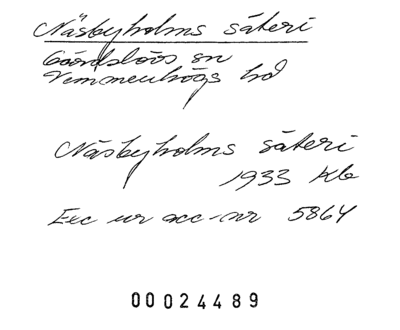 Näsbyholms säteri
Gärdslövs sn
Vemmenhögs hd
Näsbyholms säteri
1933 Kb
Exc ur acc-nr 5864
00024489